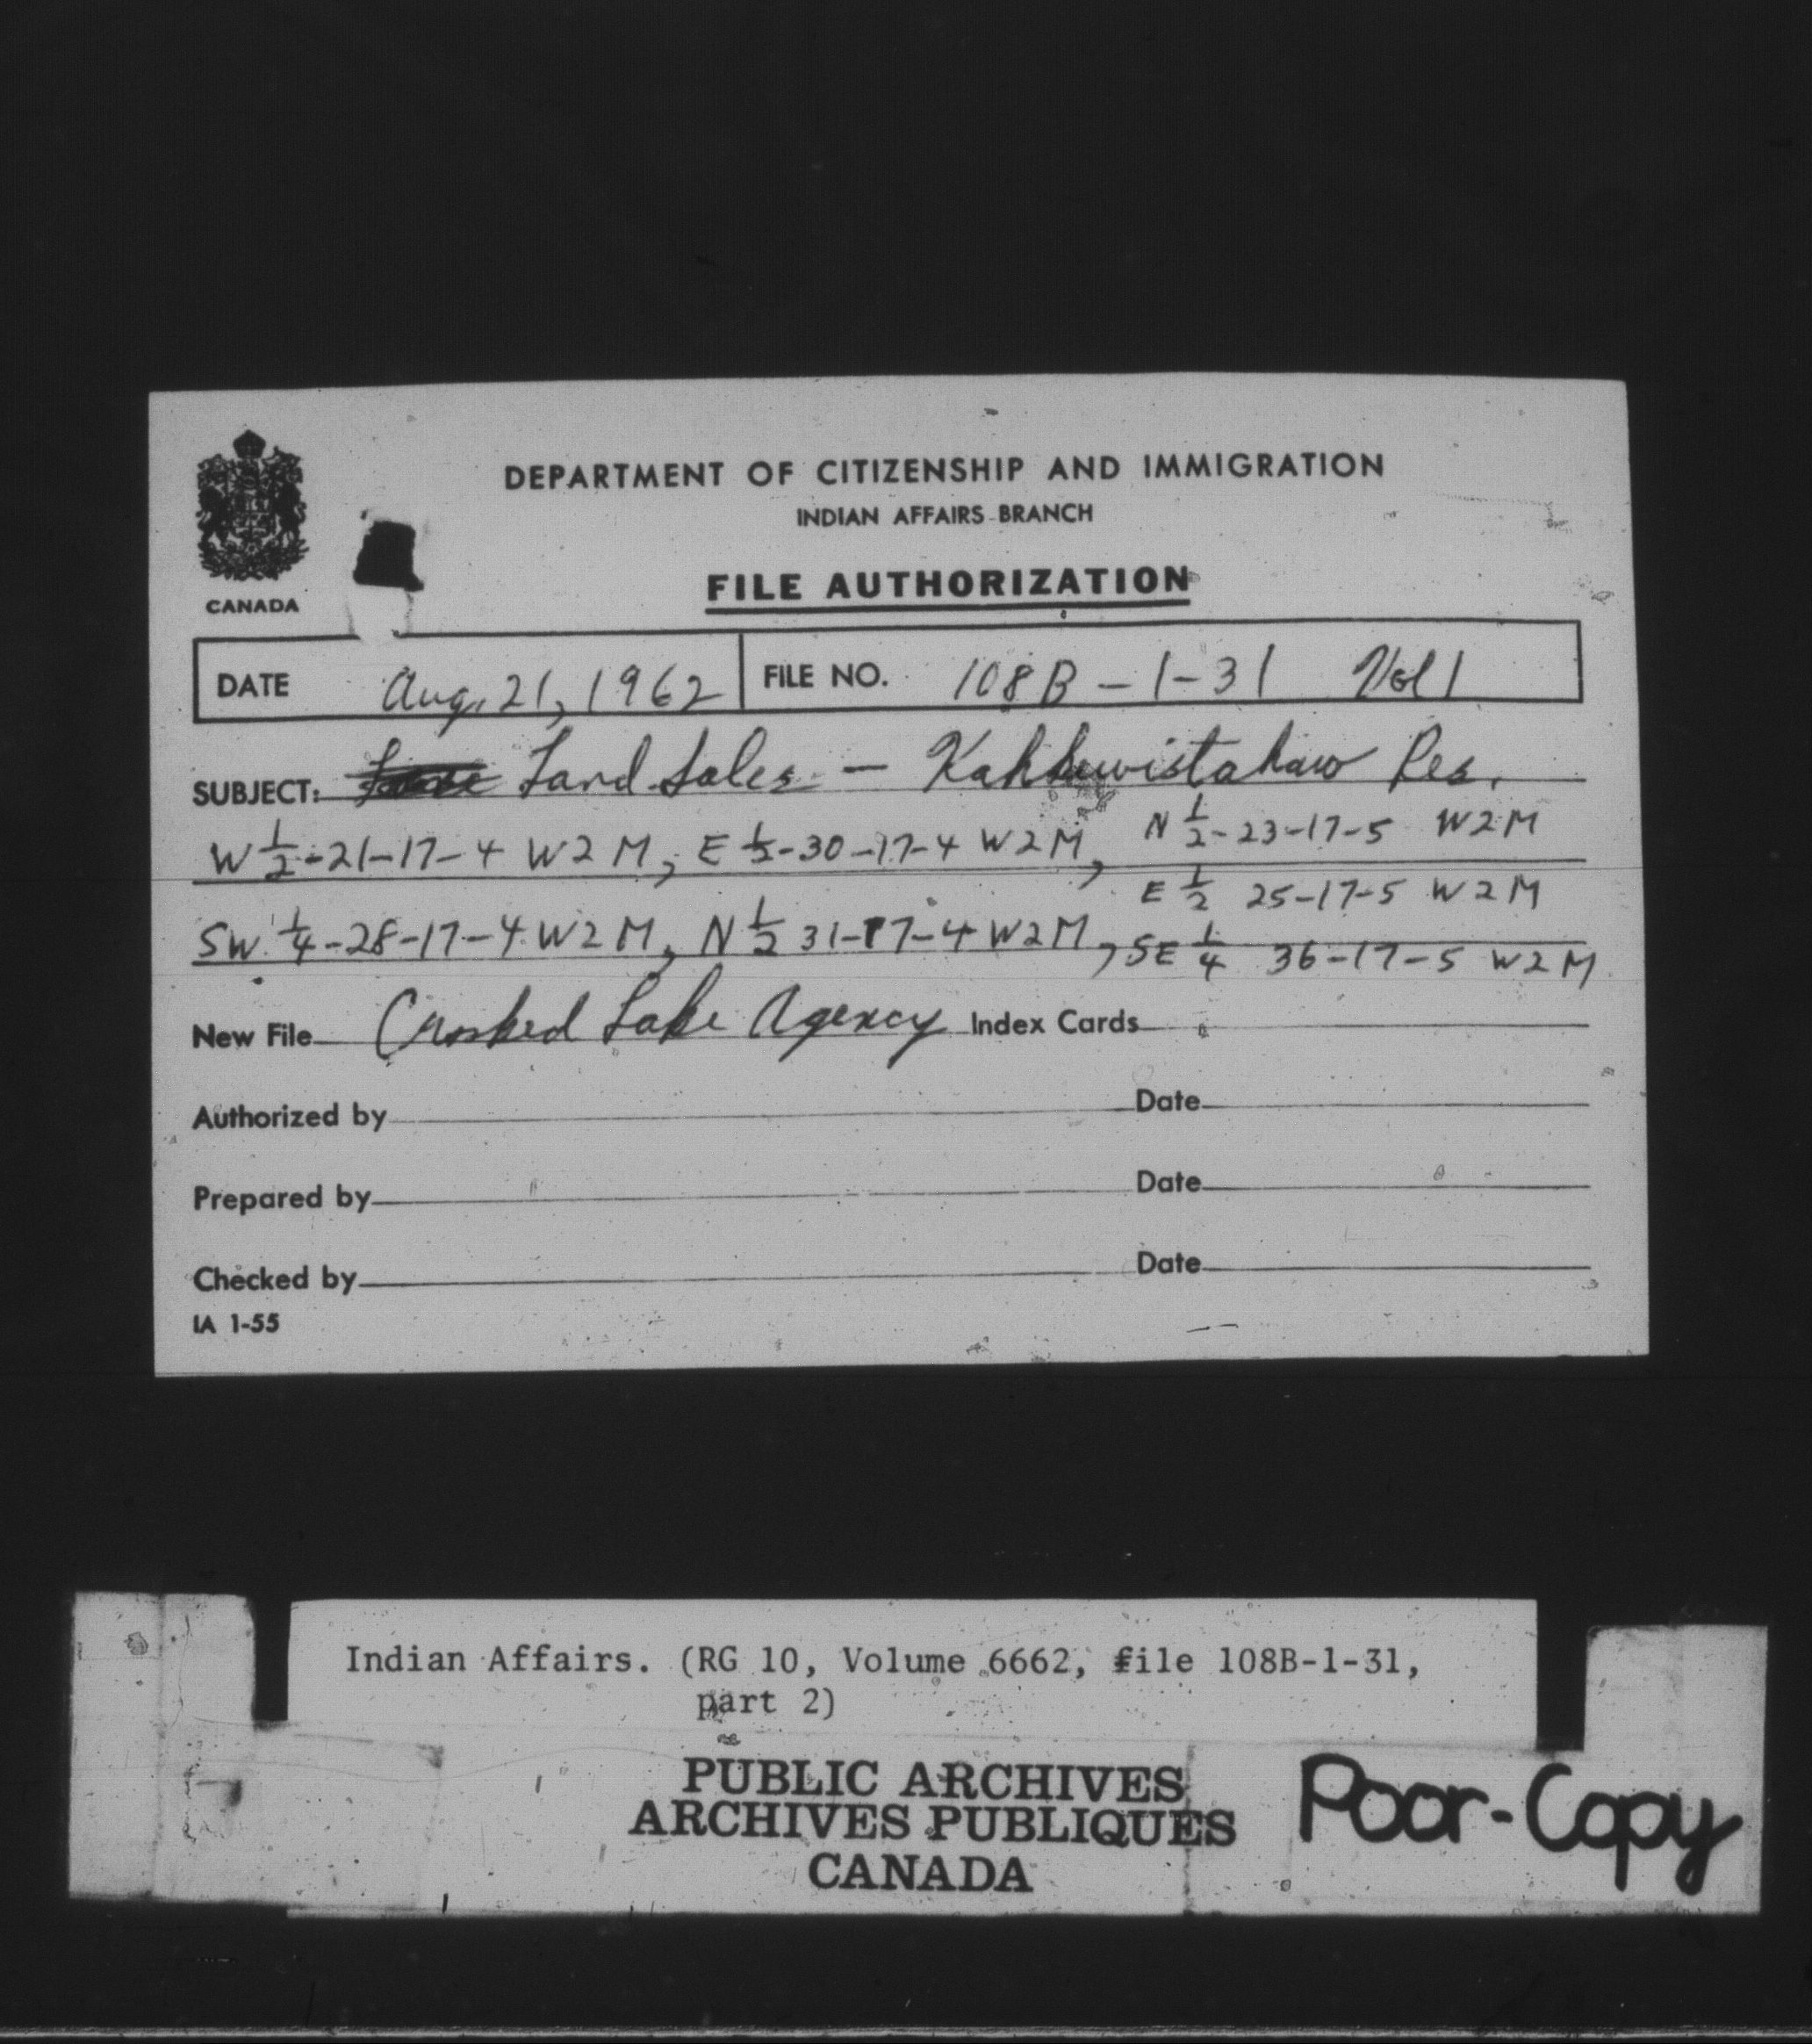 DEPARTMENT OF CITIZENSHIP AND IMMIGRATION
INDIAN AFFAIRS BRANCH
CANADA
FILE AUTHORIZATION
DATE Aug. 21, 1962 FILE NO. 108B-1-31 Vol 1
SUBJECT: Land Sales - Kahkewistahaw Res.
W 1/2-21-17-4 W2M, E 1/2-30-17-4 W2M, N 1/2-23-17-5 W2M
E 1/2 25-17-5 W2M
SW 1/4-28-17-4 W2M, N 1/2 31-17-4 W2M, SE 1/4 36-17-5 W2M
New File Crooked Lake Agency Index Cards
Authorized by Date
Prepared by Date
Checked by Date
IA 1-55
Indian Affairs. (RG 10, Volume 6662, file 108B-1-31,
part 2)
PUBLIC ARCHIVES
ARCHIVES PUBLIQUES
CANADA
Poor-Copy